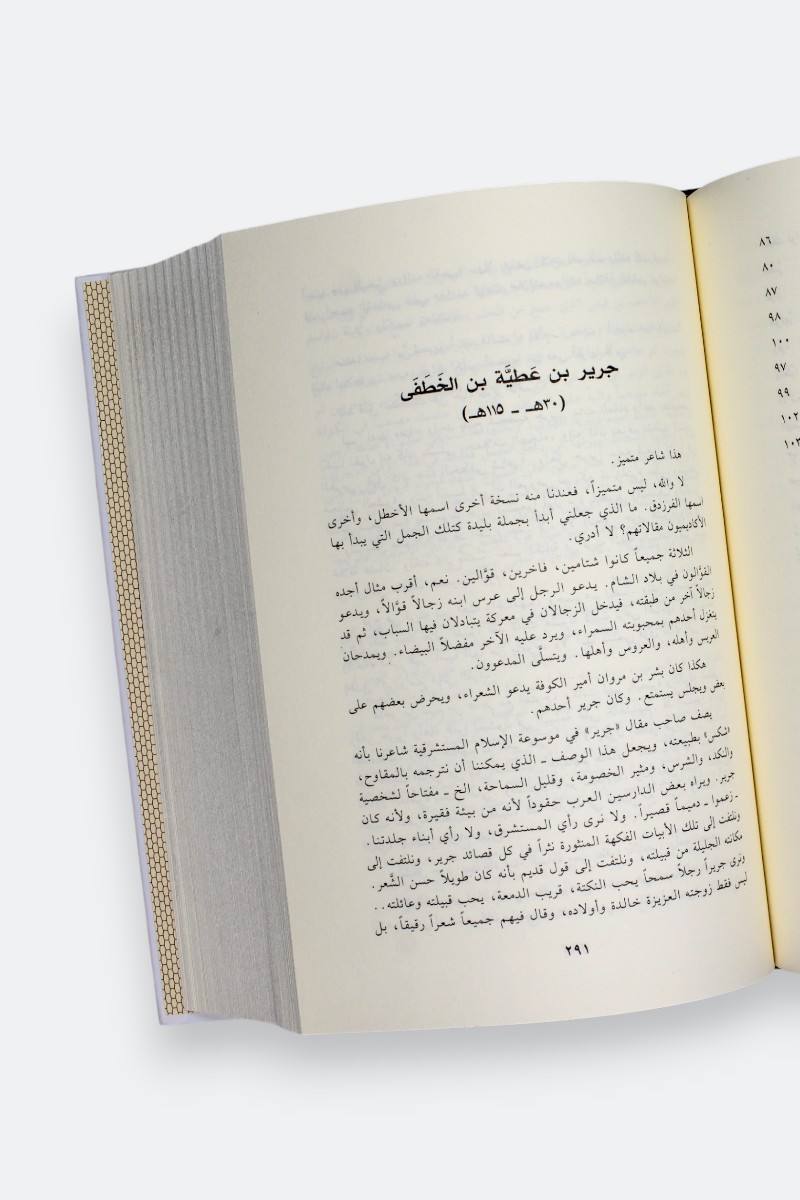 جرير بن عَطيَّة بن الخَطَفَى
(٣٠هـ ـ ١١٥هـ)
هذا شاعر متميز.
لا والله، ليس متميزاً، فعندنا منه نسخة أخرى اسمها الأخطل، وأخرى
اسمها الفرزدق. ما الذي جعلني أبدأ بجملة بليدة كتلك الجمل التي يبدأ بها
الأكاديميون مقالاتهم؟ لا أدري.
الثلاثة جميعاً كانوا شتامين، فاخرين، قوَّالين. نعم، أقرب مثال أجده
القوَّالون في بلاد الشام. يدعو الرجل إلى عرس ابنه زجالاً قوَّالاً، ويدعو
زجالاً آخر من طبقته، فيدخل الزجالان في معركة يتبادلان فيها السباب، ثم قد
يتغزل أحدهم بمحبوبته السمراء، ويرد عليه الآخر مفضلاً البيضاء. ويمدحان
العريس وأهله، والعروس وأهلها. ويتسلَّى المدعوون.
هكذا كان بشر بن مروان أمير الكوفة يدعو الشعراء، ويحرض بعضهم على
بعض ويجلس يستمتع. وكان جرير أحدهم.
يصف صاحب مقال «جرير» في موسوعة الإسلام المستشرقية شاعرنا بأنه
بطبيعته، ويجعل هذا الوصف ـ الذي يمكننا أن نترجمه بالمقاوح،
والنكد، والشرس، ومثير الخصومة، وقليل السماحة، الخ ـ مفتاحاً لشخصية
جرير. ويراه بعض الدارسين العرب حقوداً لأنه من بيئة فقيرة، ولأنه كان
ـ زعموا ـ دميماً قصيراً. ولا نرى رأي المستشرق، ولا رأي أبناء جلدتنا.
ونلتفت إلى تلك الأبيات الفكهة المنثورة نثراً في كل قصائد جرير، ونلتفت إلى
مكانته الجليلة من قبيلته، ونلتفت إلى قول قديم بأنه كان طويلاً حسن الشَّعر.
ونرى جريراً رجلاً سمحاً يحب النكتة، قريب الدمعة، يحب قبيلته وعائلته..
ليس فقط زوجته العزيزة خالدة وأولاده، وقال فيهم جميعاً شعراً رقيقاً، بل
٢٩١
٨٦
٨٠
٨٧
٩٨
١٠٠
٩٧
٩٩
١٠٢
١٠٣